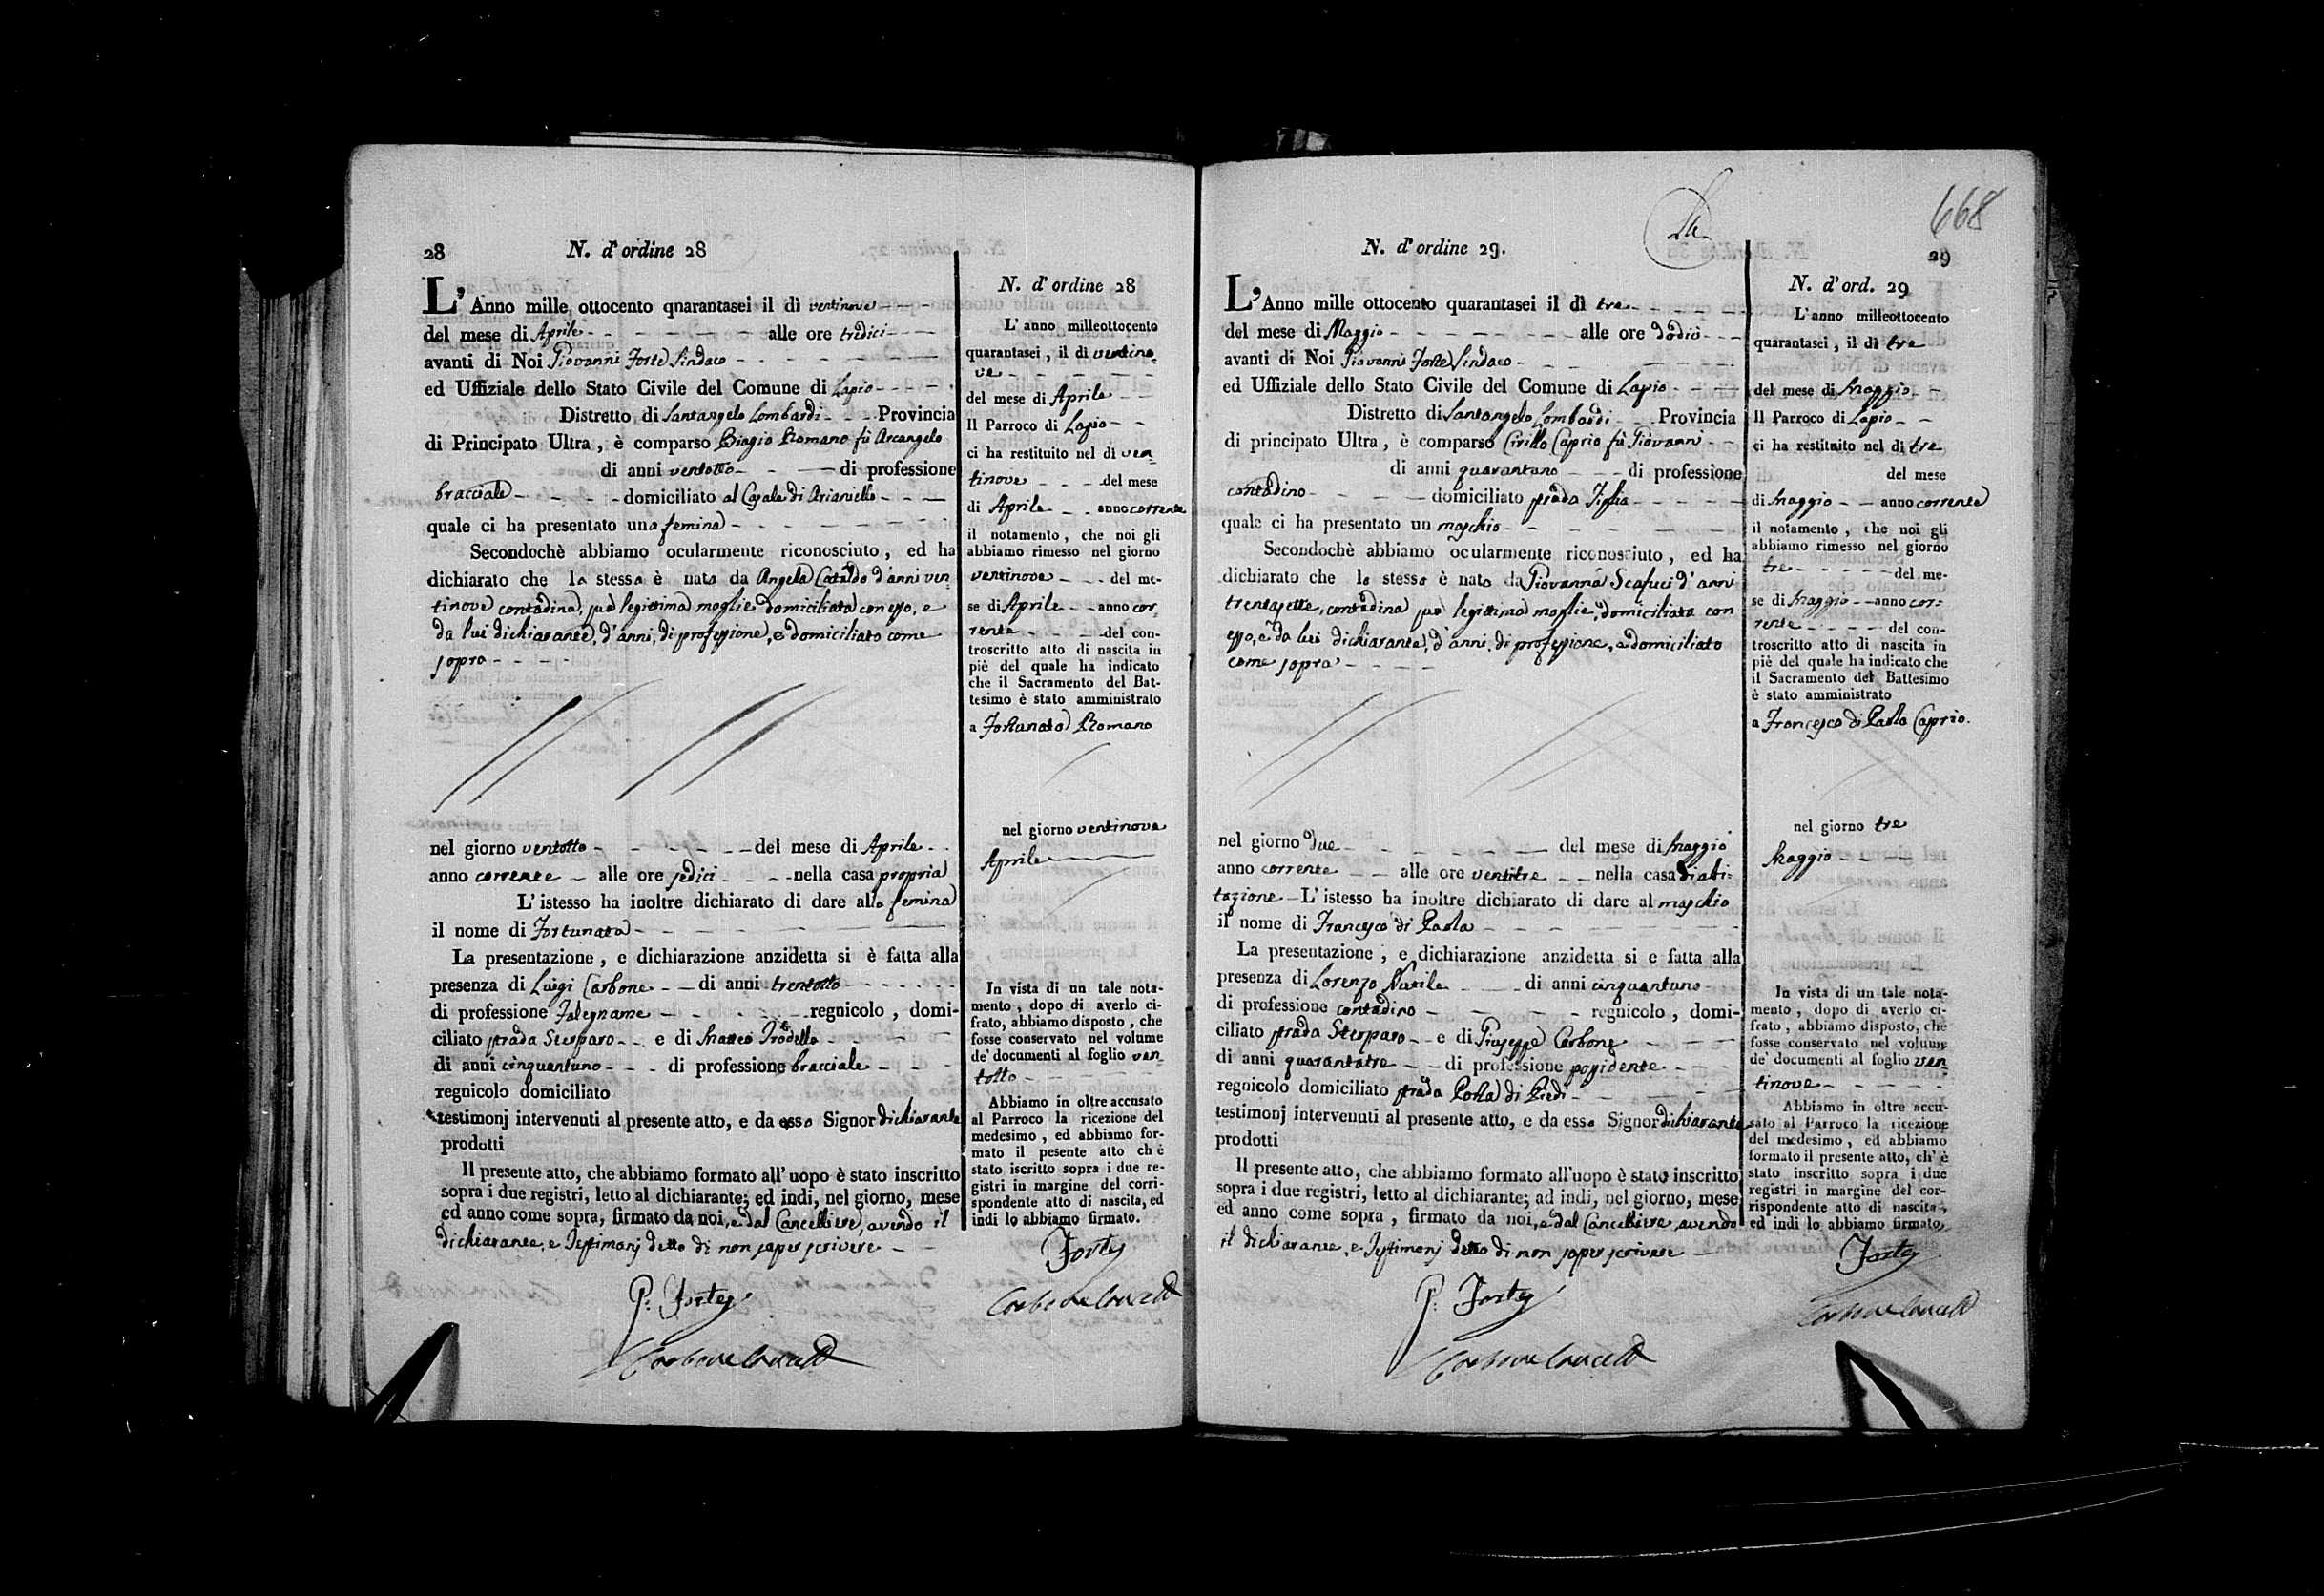 28 N. d'ordine 28
L'Anno mille ottocento quarantasei il dì ventinove
del mese di Aprile alle ore tredici
avanti di Noi Giovanni Forte Sindaco
ed Uffiziale dello Stato Civile del Comune di Lapio
Distretto di Santangelo Lombardi Provincia
di Principato Ultra, è comparso Biagio Romano fù Arcangelo
di anni ventotto di professione
bracciale domiciliato al Casale di Arianiello
quale ci ha presentato una femina
Secondochè abbiamo ocularmente riconosciuto, ed ha
dichiarato che la stessa è nata da Angela Cataldo d'anni ven
tinove contadina, sua legittima moglie domiciliata con esso, e
da lui dichiarante, d'anni, di professione, e domiciliato come
sopra
nel giorno ventotto del mese di Aprile
anno corrente alle ore sedici nella casa propria
L'istesso ha inoltre dichiarato di dare alla femina
il nome di Fortunata
La presentazione, e dichiarazione anzidetta si è fatta alla
presenza di Luigi Carbone di anni trentotto
di professione Falegname regnicolo, domi-
ciliato strada Sterparo e di Matteo
di anni cinquantuno di professione bracciale
regnicolo domiciliato
testimonj intervenuti al presente atto, e da esso Signor dichiarante
prodotti
Il presente atto, che abbiamo formato all'uopo è stato inscritto
sopra i due registri, letto al dichiarante; ed indi, nel giorno, mese
ed anno come sopra, firmato da noi, e dal Cancelliere, avendo il
dichiarante, e Testimonj detto di non saper scrivere
G. Forte
Carbone Cancell
N. d'ordine 28
L'anno milleottocento
quarantasei, il dì ventino
ve
del mese di Aprile
Il Parroco di Lapio
ci ha restituito nel dì ven
tinove del mese
di Aprile anno corrente
il notamento, che noi gli
abbiamo rimesso nel giorno
ventinove del me-
se di Aprile anno cor
rente del con-
troscritto atto di nascita in
piè del quale ha indicato
che il Sacramento del Bat-
tesimo è stato amministrato
a Fortunata Romano
nel giorno ventinove
Aprile
In vista di un tale nota-
mento, dopo di averlo ci-
frato, abbiamo disposto, che
fosse conservato nel volume
de' documenti al foglio ven
totto
Abbiamo in oltre accusato
al Parroco la ricezione del
medesimo, ed abbiamo for-
mato il pesente atto ch'è
stato iscritto sopra i due re-
gistri in margine del corri-
spondente atto di nascita, ed
indi lo abbiamo firmato.
Forte
Carbone Cancell
668
N. d'ordine 29. 29
L'Anno mille ottocento quarantasei il dì tre
del mese di Maggio alle ore dodici
avanti di Noi Giovanni Forte Sindaco
ed Uffiziale dello Stato Civile del Comune di Lapio
Distretto di Santangelo Lombardi Provincia
di principato Ultra, è comparso Cirillo Caprio fù Giovanni
di anni quarantuno di professione
contadino domiciliato strada Tiglia
quale ci ha presentato un maschio
Secondochè abbiamo ocularmente riconosciuto, ed ha
dichiarato che lo stesso è nato da Giovanna Scafuci d'anni
trentasette, contadina sua legittima moglie, domiciliata con
esso, e da lui dichiarante, d'anni, di professione, e domiciliato
come sopra
nel giorno due del mese di Maggio
anno corrente alle ore ventitre nella casa di abi:
tazione L'istesso ha inoltre dichiarato di dare al maschio
il nome di Francesco di Paola
La presentazione, e dichiarazione anzidetta si e fatta alla
presenza di Lorenzo di anni cinquantuno
di professione contadino regnicolo, domi-
ciliato strada Sterparo e di Giuseppe Carbone
di anni quarantatre di professione possidente
regnicolo domiciliato strada Porta di Piedi
testimonj intervenuti al presente atto, e da esso Signor dichiarante
prodotti
Il presente atto, che abbiamo formato all'uopo è stato inscritto
sopra i due registri, letto al dichiarante; ad indi, nel giorno, mese
ed anno come sopra, firmato da noi, e dal Cancelliere avendo
il dichiarante, e Testimonj detto di non saper scrivere
G. Forte
Carbone Cancell
N. d'ord. 29
L'anno milleottocento
quarantasei, il dì tre
del mese di Maggio
Il Parroco di Lapio
ci ha restituito nel dì tre
del mese
di Maggio anno corrente
il notamento, che noi gli
abbiamo rimesso nel giorno
tre del me-
se di Maggio anno cor:
rente del con-
troscritto atto di nascita in
piè del quale ha indicato che
il Sacramento del Battesimo
è stato amministrato
a Francesco di Paola Caprio.
nel giorno tre
Maggio
In vista di un tale nota-
mento, dopo di averlo ci-
frato, abbiamo disposto, che
fosse conservato nel volume
de' documenti al foglio ven
tinove
Abbiamo in oltre accu-
sato al Parroco la ricezione
del medesimo, ed abbiamo
formato il presente atto, ch'è
stato inscritto sopra i due
registri in margine del cor-
rispondente atto di nascita,
ed indi lo abbiamo firmato,
Forte
Carbone Cancell